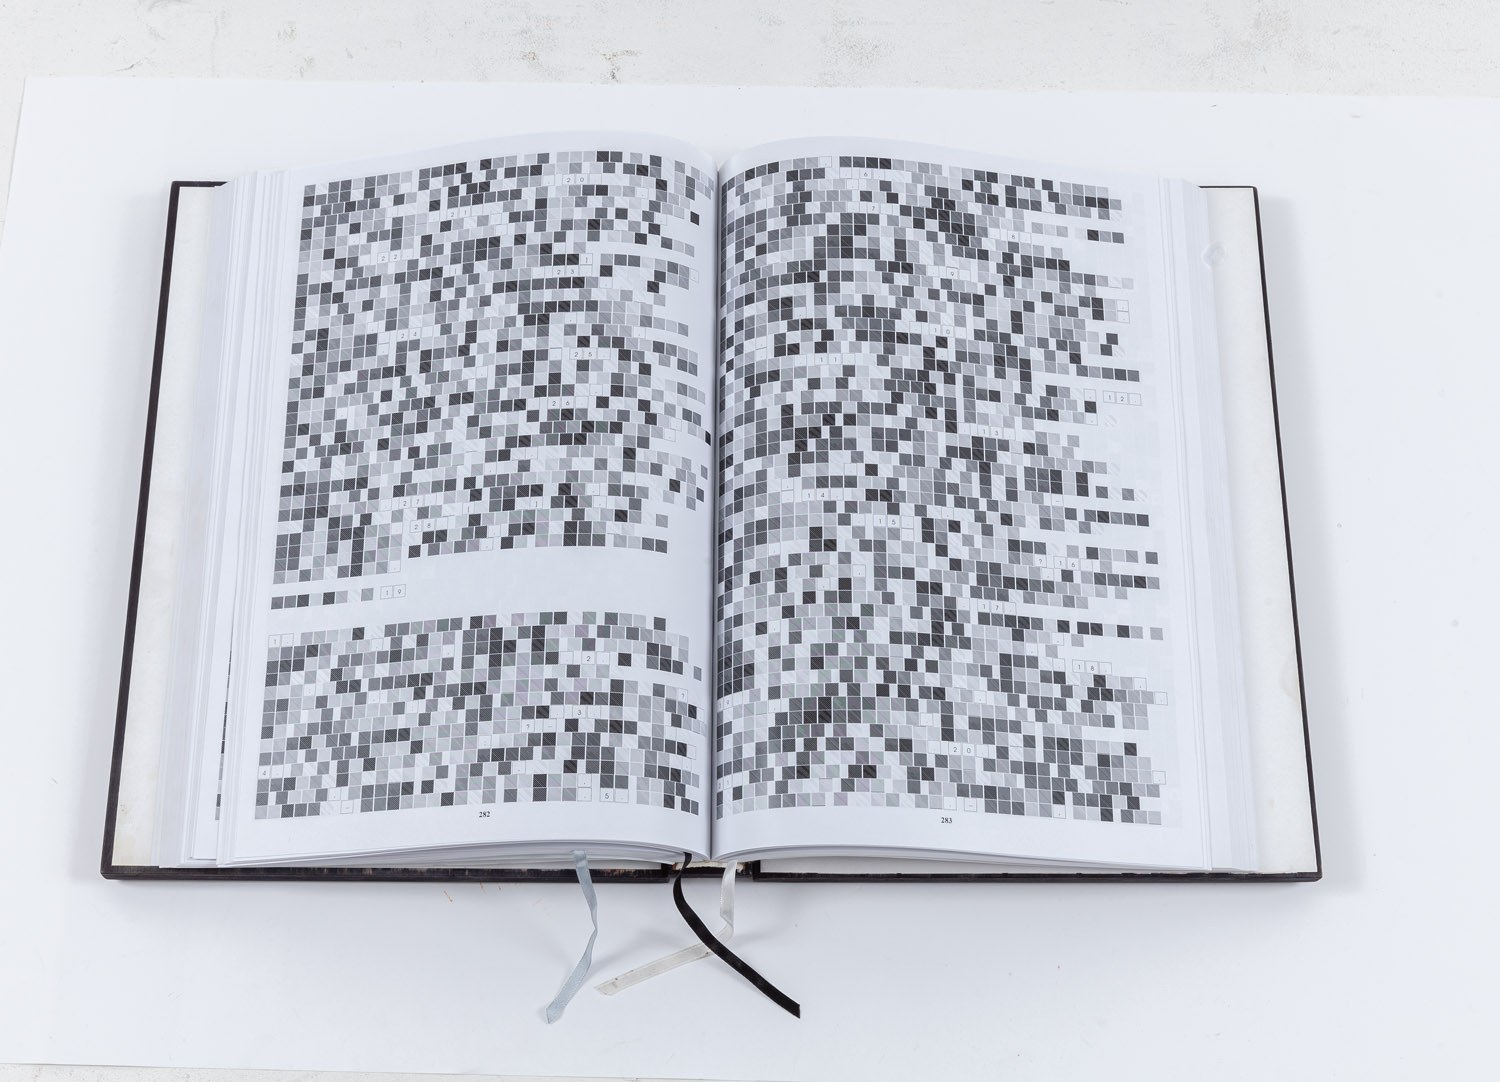 20
21
22
23
24
25
26
27
28
19
1.
2
?
? — 3
4
. 5.
282
6
7
8
9
10
11
12.
13
14
15
? 16
17
18.
20
. —
283